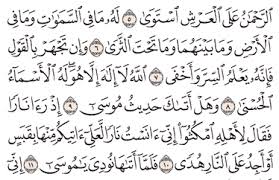 ٱلرَّحْمَٰنُ عَلَى ٱلْعَرْشِ ٱسْتَوَىٰ ٥ لَهُۥ مَا فِى ٱلسَّمَٰوَٰتِ وَمَا فِى
ٱلْأَرْضِ وَمَا بَيْنَهُمَا وَمَا تَحْتَ ٱلثَّرَىٰ ٦ وَإِن تَجْهَرْ بِٱلْقَوْلِ
فَإِنَّهُۥ يَعْلَمُ ٱلسِّرَّ وَأَخْفَى ٧ ٱللَّهُ لَآ إِلَٰهَ إِلَّا هُوَ لَهُ ٱلْأَسْمَآءُ
ٱلْحُسْنَىٰ ٨ وَهَلْ أَتَىٰكَ حَدِيثُ مُوسَىٰٓ ٩ إِذْ رَءَا نَارًا
فَقَالَ لِأَهْلِهِ ٱمْكُثُوٓا۟ إِنِّىٓ ءَانَسْتُ نَارًا لَّعَلِّىٓ ءَاتِيكُم مِّنْهَا بِقَبَسٍ
أَوْ أَجِدُ عَلَى ٱلنَّارِ هُدًى ١٠ فَلَمَّآ أَتَىٰهَا نُودِىَ يَٰمُوسَىٰٓ ١١ إِنِّىٓ